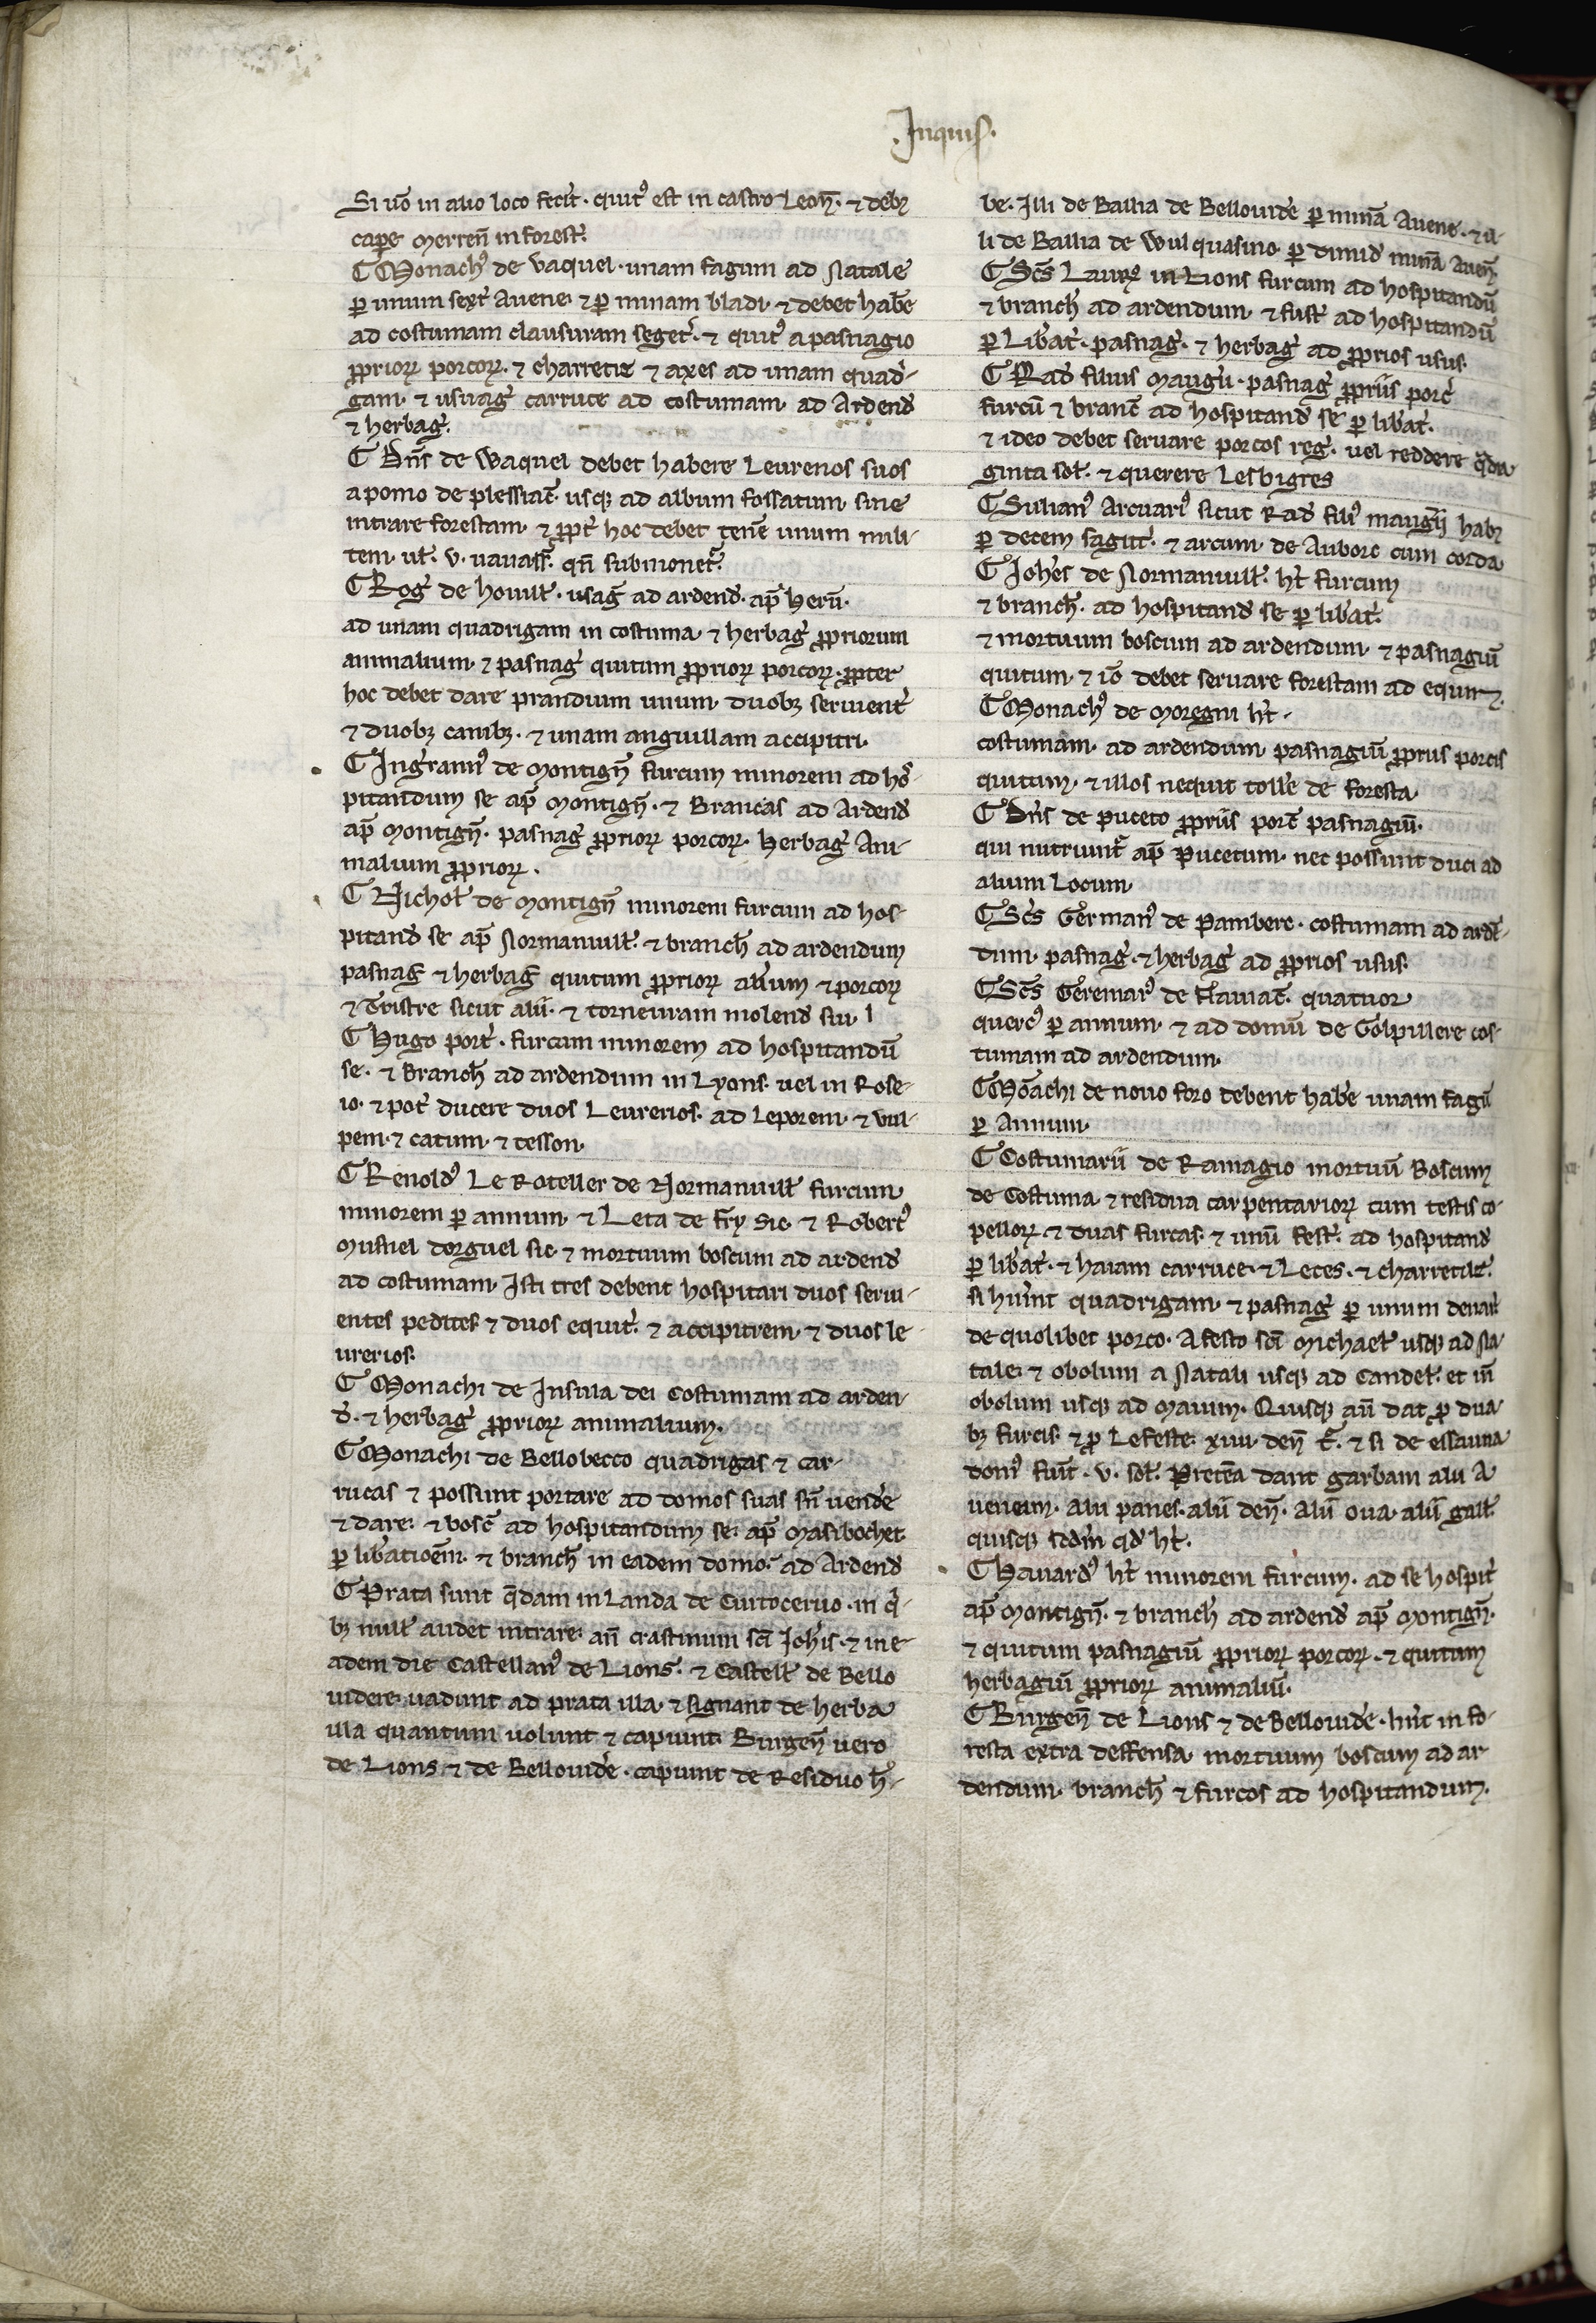 Inquis.
Si uo in alio loco fecit. quit9 est in castro Leon. ⁊ debꝫ
capꝑe merren in forest.
¶ Monach9 de Vaquel. unam fagum ad Natale
ꝑ unum sext Auene. ⁊ ꝑ minam bladi. ⁊ debet habe
ad costumam clausuram seget. ⁊ quit9 a pasnagio
ꝓpriorꝝ porcorꝝ. ⁊ charretie ⁊ axes ad unam quad-
gam. ⁊ usuag carruce ad costumam. ad Ardend
⁊ herbag.
¶ Dns de Waquel debet habere Leurerios suos
a pomo de plessiac. usqꝫ ad album fossatum. sine
intrare forestam. ⁊ ꝓpt hoc debet tene unum mili-
tem. ul. v. uauass. qn submonet.
¶ Rog de houill. usag ad ardend. ap herum.
ad unam quadrigam in costuma ⁊ herbag ꝓpriorum
animalium. ⁊ pasnag quitum ꝓpriorꝝ porcorꝝ. ꝓpter
hoc debet dare prandium unum. duobꝫ seruient
⁊ duobꝫ canibꝫ. ⁊ unam anguillam accipitri.
¶ Ingrann9 de Montign furcum minorem ad hos-
pitandum se ap Montign. ⁊ Brancas ad Ardend
ap Montign. pasnag ꝓpriorꝝ porcorꝝ. herbag Ani-
malium ꝓpriorꝝ.
¶ Nichol de Montign minorem furcum ad hos-
pitand se ap Normanuill. ⁊ branch ad ardendum
pasnag ⁊ herbag quitum ꝓpriorꝝ alium ⁊ porcorꝝ
⁊ Tristre sicut alii. ⁊ torneuram molend sui.
¶ Hugo port. furcum minorem ad hospitandū
se. ⁊ Branch ad ardendum in Lyons. uel in Rose-
io. ⁊ pot ducere duos Leurerios. ad Leporem. ⁊ vul-
pem. ⁊ catum. ⁊ tesson.
¶ Renold9 Le Roteller de Normanuill furcum
minorem ꝑ annum. ⁊ Leta de Fry sic. ⁊ Robert9
Musuel dorguel sic. ⁊ mortuum boscum ad ardend
ad costumam. Isti tres debent hospitari duos serui-
entes pedites. ⁊ duos equit. ⁊ accipitrem. ⁊ duos le
urerios.
¶ Monachi de Insula dei Costumam ad arden-
d. ⁊ herbag ꝓpriorꝝ animalium.
¶ Monachi de Bellobecco quadrigas ⁊ car-
rucas ⁊ possunt portare ad domos suas sn uende
⁊ dare. ⁊ bosc ad hospitandum se. ap Masibochet.
ꝑ libatioem. ⁊ branch in eadem domo. ad Ardend
¶ Prata sunt qdam in Landa de Curtoceruo. in q-
bꝫ null audet intrare. an crastinum sci Johis. ⁊ in e-
adem die Castellan9 de Lions. ⁊ Castell de Bello
uidere. uadunt ad prata illa. ⁊ signant de herba
illa quantum uolunt ⁊ capiunt. Burgen uero
de Lions ⁊ de Bellouide. capiunt de Residuo h-
be. Illi de Ballia de Bellouide ꝑ minā Auene. ⁊ il-
li de Ballia de Wulquasino ꝑ dimid minā Auen.
¶ Scs Laurꝫ in Lions furcum ad hospitandū
⁊ branch ad ardendum. ⁊ fust ad hospitandū
ꝑ Libat. pasnag. ⁊ herbag ad ꝓprios usus.
¶ Rad filius Maugii. pasnag ꝓpriis porc
furcū ⁊ branc ad hospitand se ꝑ libat.
⁊ ideo debet seruare porcos reg. uel reddere qdra
ginta sol. ⁊ querere Lesbigres
¶ Julian9 Arcuari9 sicut Rad fili9 maugii habꝫ
ꝑ decem sagitt. ⁊ arcum. de Auborc cum corda
¶ Johes de Normanuill. ht furcum
⁊ branch. ad hospitand se ꝑ libat.
⁊ mortuum boscum ad ardendum. ⁊ pasnagiū
quitum. ⁊ io debet seruare forestam ad equm.
¶ Monach9 de Moregni ht.
costumam. ad ardendum. pasnagiū ꝓpriis porcis
quitum. ⁊ illos nequit tolle de foresta
¶ Dns de puceto ꝓpriis porc pasnagiū.
qui nutriunt ap Pucetum. nec possunt duci ad
alium Locum.
¶ Scs German9 de Pambere. costumam ad ardē-
dum. pasnag. ⁊ herbag ad ꝓprios usus.
¶ Scs Geremar9 de Flauiac. quatuor
querc9 ꝑ annum. ⁊ ad domū de Golpillere cos-
tumam ad ardendum.
¶ Moachi de nouo foro debent habe unam fagū
ꝑ Annum.
¶ Costumarii de Ramagio mortuū Boscum
de Costuma. ⁊ residua carpentariorꝝ cum testis co-
pellorꝝ ⁊ duas furcas. ⁊ unū fest. ad hospitand
ꝑ libat. ⁊ haiam carruce. ⁊ Leces. ⁊ charretile.
si huint quadrigam. ⁊ pasnag ꝑ unum denar
de quolibet porco. A festo sci Michael usqꝫ ad Na-
tale. ⁊ obolum a Natali usqꝫ ad Candel. et in
obolum usqꝫ ad Maium. Quisqꝫ aū dat ꝓ dua-
bꝫ furcis. ⁊ ꝓ Lefeste. xiiii. den t. ⁊ si de essauna
dom9 fuit. v. sol. Pretea dant garbam alii A
uenem. Alii panes. alii den. Alii oua. alii gall.
quisqꝫ scdm qd ht.
¶ Hauard9 ht minorem furcum. ad se hospit
ap Montign. ⁊ branch ad ardend ap Montign.
⁊ quitum pasnagiū ꝓpriorꝝ porcorꝝ. ⁊ quitum
herbagiū ꝓpriorꝝ animaliū.
¶ Burgen de Lions ⁊ de Bellouide. hnt in fo-
resta extra deffensa mortuum boscum ad ar
dendum. branch ⁊ furcos ad hospitandum.